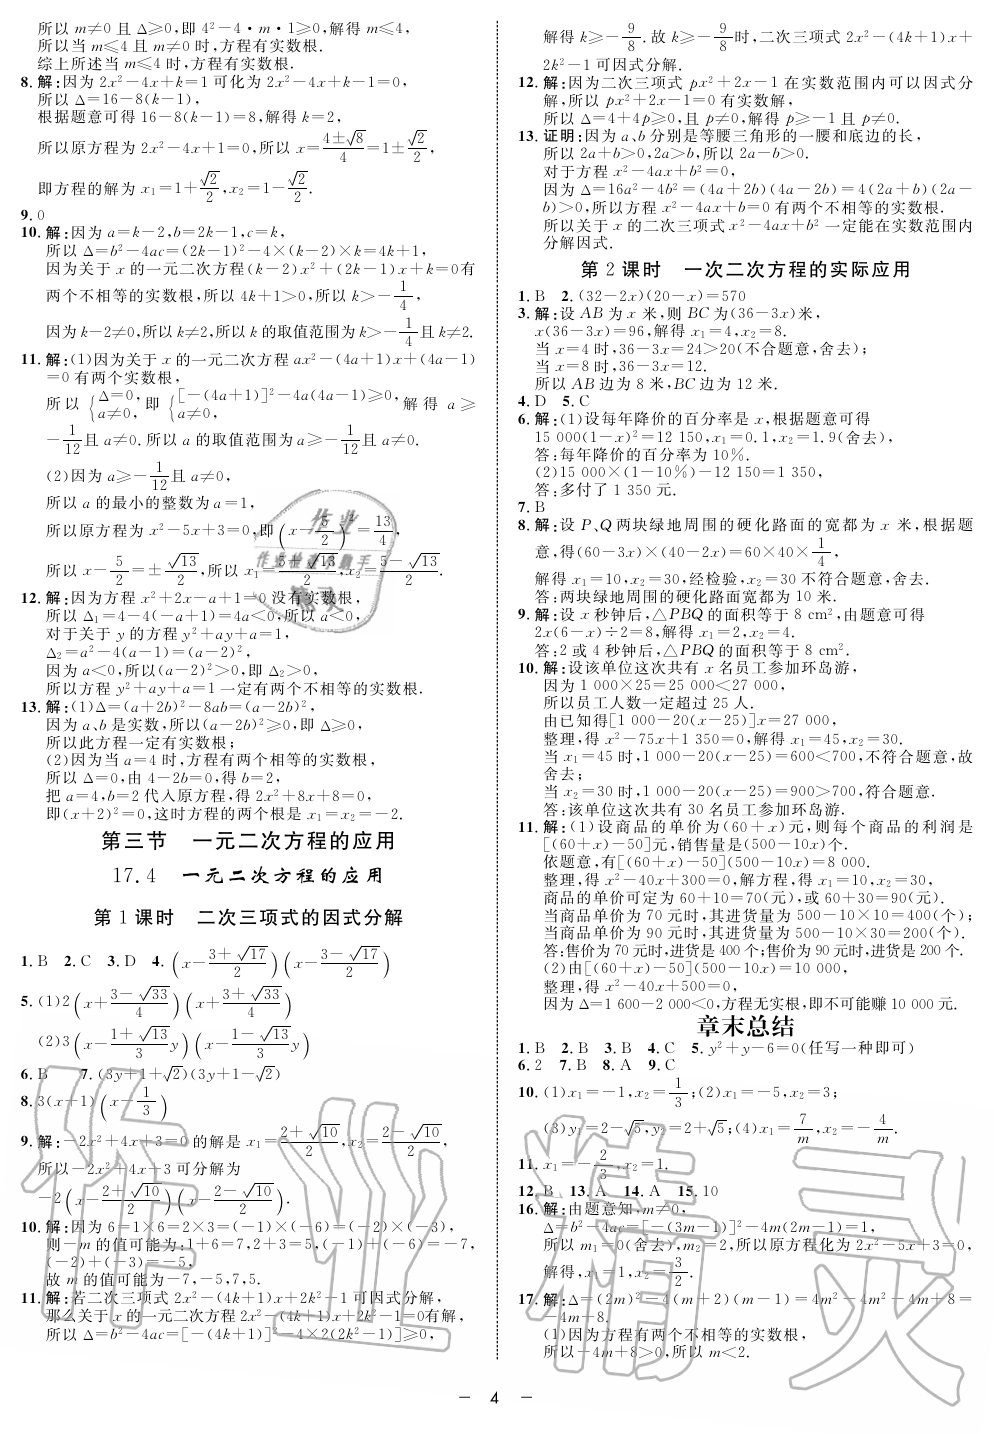 所以 m≠0 且 Δ≥0,即 4²-4·m·1≥0,解得 m≤4,
所以当 m≤4 且 m≠0 时,方程有实数根.
综上所述当 m≤4 时,方程有实数根.
8. 解:因为 2x²-4x+k=1 可化为 2x²-4x+k-1=0,
所以 Δ=16-8(k-1),
根据题意可得 16-8(k-1)=8,解得 k=2,
所以原方程为 2x²-4x+1=0,所以 x=(4±√8)/4=1±√2/2,
即方程的解为 x₁=1+√2/2,x₂=1-√2/2.
9. 0
10. 解:因为 a=k-2,b=2k-1,c=k,
所以 Δ=b²-4ac=(2k-1)²-4×(k-2)×k=4k+1,
因为关于 x 的一元二次方程(k-2)x²+(2k-1)x+k=0有
两个不相等的实数根,所以 4k+1>0,所以 k>-1/4,
因为 k-2≠0,所以 k≠2,所以 k 的取值范围为 k>-1/4且 k≠2.
11. 解:(1)因为关于 x 的一元二次方程 ax²-(4a+1)x+(4a-1)
=0 有两个实数根,
所以 {Δ=0, a≠0, 即 {[-(4a+1)]²-4a(4a-1)≥0, a≠0, 解得 a≥
-1/12且 a≠0. 所以 a 的取值范围为 a≥-1/12且 a≠0.
(2)因为 a≥-1/12且 a≠0,
所以 a 的最小的整数为 a=1,
所以原方程为 x²-5x+3=0,即(x-5/2)²=13/4,
所以 x-5/2=±√13/2,所以 x₁=(5+√13)/2,x₂=(5-√13)/2.
12. 解:因为方程 x²+2x-a+1=0 没有实数根,
所以 Δ₁=4-4(-a+1)=4a<0,所以 a<0,
对于关于 y 的方程 y²+ay+a=1,
Δ₂=a²-4(a-1)=(a-2)²,
因为 a<0,所以(a-2)²>0,即 Δ₂>0,
所以方程 y²+ay+a=1 一定有两个不相等的实数根.
13. 解:(1)Δ=(a+2b)²-8ab=(a-2b)²,
因为 a、b 是实数,所以(a-2b)²≥0,即 Δ≥0,
所以此方程一定有实数根;
(2)因为当 a=4 时,方程有两个相等的实数根,
所以 Δ=0,由 4-2b=0,得 b=2,
把 a=4,b=2 代入原方程,得 2x²+8x+8=0,
即(x+2)²=0,这时方程的两个根是 x₁=x₂=-2.
第三节 一元二次方程的应用
17.4 一元二次方程的应用
第 1 课时 二次三项式的因式分解
1. B 2. C 3. D 4. (x-(3+√17)/2)(x-(3-√17)/2)
5. (1)2(x+(3-√33)/4)(x+(3+√33)/4)
(2)3(x-(1+√13)/3 y)(x-(1-√13)/3 y)
6. B 7. (3y+1+√2)(3y+1-√2)
8. 3(x+1)(x-1/3)
9. 解:-2x²+4x+3=0 的解是 x₁=(2+√10)/2,x₂=(2-√10)/2,
所以-2x²+4x+3 可分解为
-2(x-(2+√10)/2)(x-(2-√10)/2).
10. 解:因为 6=1×6=2×3=(-1)×(-6)=(-2)×(-3),
则-m 的值可能为:1+6=7,2+3=5,(-1)+(-6)=-7,
(-2)+(-3)=-5,
故 m 的值可能为-7,-5,7,5.
11. 解:若二次三项式 2x²-(4k+1)x+2k²-1 可因式分解,
那么关于 x 的一元二次方程 2x²-(4k+1)x+2k²-1=0有解,
所以 Δ=b²-4ac=[-(4k+1)]²-4×2(2k²-1)]≥0,
解得 k≥-9/8. 故 k≥-9/8时,二次三项式 2x²-(4k+1)x+
2k²-1 可因式分解.
12. 解:因为二次三项式 px²+2x-1 在实数范围内可以因式分
解,所以 px²+2x-1=0 有实数解,
所以 Δ=4+4p≥0,且 p≠0,解得 p≥-1 且 p≠0.
13. 证明:因为 a、b 分别是等腰三角形的一腰和底边的长,
所以 2a+b>0,2a>b,所以 2a-b>0.
对于方程 x²-4ax+b²=0,
因为 Δ=16a²-4b²=(4a+2b)(4a-2b)=4(2a+b)(2a-
b)>0,所以方程 x²-4ax+b=0 有两个不相等的实数根.
所以关于 x 的二次三项式 x²-4ax+b² 一定能在实数范围内
分解因式.
第 2 课时 一次二次方程的实际应用
1. B 2. (32-2x)(20-x)=570
3. 解:设 AB 为 x 米,则 BC 为(36-3x)米,
x(36-3x)=96,解得 x₁=4,x₂=8.
当 x=4 时,36-3x=24>20(不合题意,舍去);
当 x=8 时,36-3x=12.
所以 AB 边为 8 米,BC 边为 12 米.
4. D 5. C
6. 解:(1)设每年降价的百分率是 x,根据题意可得
15 000(1-x)²=12 150,x₁=0.1,x₂=1.9(舍去),
答:每年降价的百分率为 10%.
(2)15 000×(1-10%)-12 150=1 350,
答:多付了 1 350 元.
7. B
8. 解:设 P、Q 两块绿地周围的硬化路面的宽都为 x 米,根据题
意,得(60-3x)×(40-2x)=60×40×1/4,
解得 x₁=10,x₂=30,经检验,x₂=30 不符合题意,舍去.
答:两块绿地周围的硬化路面宽都为 10 米.
9. 解:设 x 秒钟后,△PBQ 的面积等于 8 cm²,由题意可得
2x(6-x)÷2=8,解得 x₁=2,x₂=4.
答:2 或 4 秒钟后,△PBQ 的面积等于 8 cm².
10. 解:设该单位这次共有 x 名员工参加环岛游,
因为 1 000×25=25 000<27 000,
所以员工人数一定超过 25 人.
由已知得[1 000-20(x-25)]x=27 000,
整理,得 x²-75x+1 350=0,解得 x₁=45,x₂=30.
当 x₁=45 时,1 000-20(x-25)=600<700,不符合题意,故
舍去;
当 x₂=30 时,1 000-20(x-25)=900>700,符合题意.
答:该单位这次共有 30 名员工参加环岛游.
11. 解:(1)设商品的单价为(60+x)元,则每个商品的利润是
[(60+x)-50]元,销售量是(500-10x)个.
依题意,有[(60+x)-50](500-10x)=8 000.
整理,得 x²-40x+300=0,解方程,得 x₁=10,x₂=30,
商品的单价可定为 60+10=70(元),或 60+30=90(元).
当商品单价为 70 元时,其进货量为 500-10×10=400(个);
当商品单价为 90 元时,其进货量为 500-10×30=200(个).
答:售价为 70 元时,进货是 400 个;售价为 90 元时,进货是 200 个.
(2)由[(60+x)-50](500-10x)=10 000,
整理,得 x²-40x+500=0,
因为 Δ=1 600-2 000<0,方程无实根,即不可能赚 10 000 元.
章末总结
1. B 2. B 3. B 4. C 5. y²+y-6=0(任写一种即可)
6. 2 7. B 8. A 9. C
10. (1)x₁=-1,x₂=1/3;(2)x₁=-5,x₂=3;
(3)y₁=2-√5,y₂=2+√5;(4)x₁=7/m,x₂=-4/m.
11. x₁=-2/3,x₂=1.
12. B 13. A 14. A 15. 10
16. 解:由题意知,m≠0,
Δ=b²-4ac=[-(3m-1)]²-4m(2m-1)=1,
所以 m₁=0(舍去),m₂=2,所以原方程化为 2x²-5x+3=0,
解得,x₁=1,x₂=3/2.
17. 解:Δ=(2m)²-4(m+2)(m-1)=4m²-4m²-4m+8=
-4m+8.
(1)因为方程有两个不相等的实数根,
所以-4m+8>0,所以 m<2.
- 4 -
作业精灵